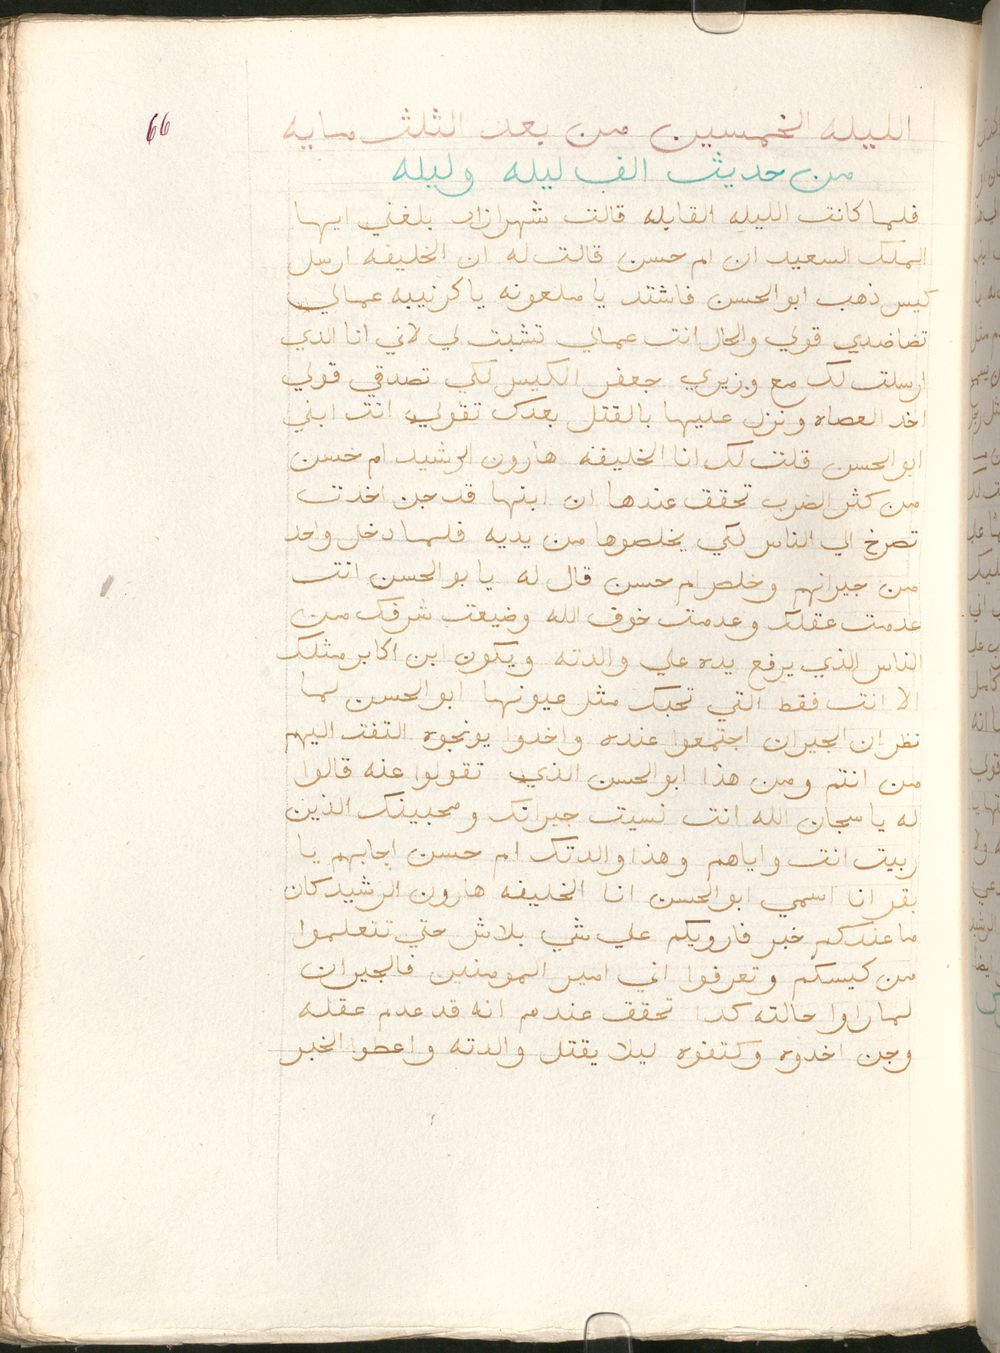 66
الليله الخمسين من بعد الثلث مايه
من حديث الف ليله وليله
فلما كانت الليله القابله قالت شهرازاد بلغني ايها
الملك السعيد ان ام حسن قالت له ان الخليفه ارسل
كيس ذهب ابو الحسن فاشتد يا ملعونه يا كرنيبه عمالي
تضاضدي قولي والحال انت عمالي تشبت لي لاني انا الدي
ارسلت لك مع وزيري جعفر الكيس لكي تصدقي قولي
اخد العصاه ونزل عليها بالقتل بعدك تقولي انت ابني
ابو الحسن قلت لك انا الخليفه هارون الرشيد ام حسن
من كثر الضرب تحقق عندها ان ابنها قد جن اخدت
تصرخ الي الناس لكي يخلصوها من يديه فلما دخل واحد
من جيرانهم وخلص ام حسن قال له يابو الحسن انت
عدمت عقلك وعدمت خوف الله وضيعت شرفك من
الناس الذي يرفع يده علي والدته ويكون ابن اكابر مثلك
الا انت فقط التي تحبك مثل عيونها ابو الحسن لما
نظر ان الجيران اجتمعوا عنده واخدوا يونجوه التفت اليهم
من انتم ومن هذا ابو الحسن الذي تقولوا عنه قالوا
له يا سبحان الله انت نسيت جيرانك ومحبينك الذين
ربيت انت واياهم وهذا والدتك ام حسن اجابهم يا
بقر انا اسمي ابو الحسن انا الخليفه هارون الرشيد كان
ما عندكم خبر فارويكم علي شي بلاش حتي تتعلموا
من كيسكم وتعرفوا اني امير المومنين فالجيران
لما راوا حالته كدا تحقق عندهم انه قد عدم عقله
وجن اخدوه وكتفوه ليلا يقتل والدته واعطوا الخبر